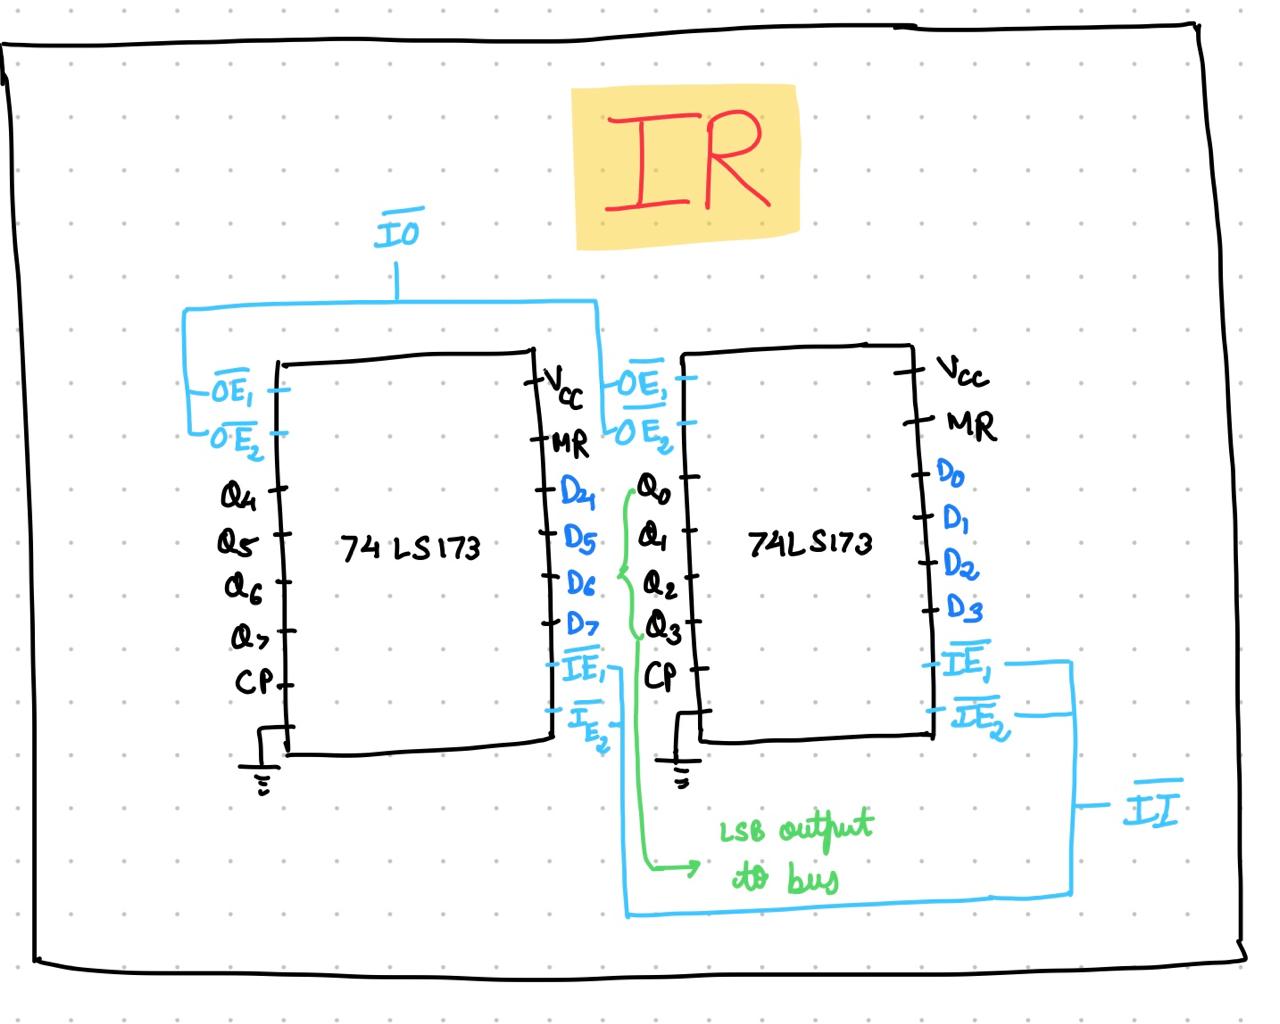 IR
IO
OE₁
OE₂
Q₄
Q₅
Q₆
Q₇
CP
74LS173
Vcc
MR
D₄
D₅
D₆
D₇
IE₁
IE₂
OE₁
OE₂
Q₀
Q₁
Q₂
Q₃
CP
74LS173
Vcc
MR
D₀
D₁
D₂
D₃
IE₁
IE₂
II
LSB output
to bus